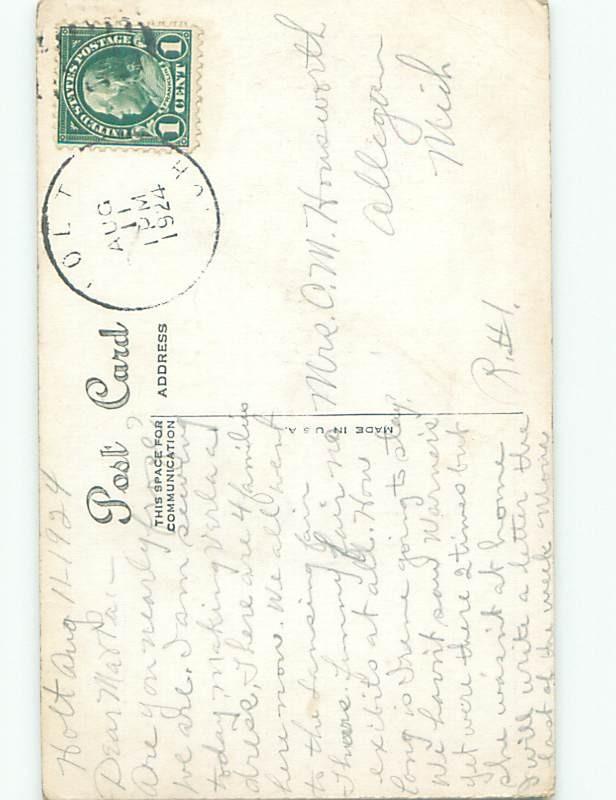 UNITED STATES POSTAGE
1 CENT 1
FRANKLIN
OLT
CH
AUG
11
1 PM
1924
Post Card
THIS SPACE FOR
COMMUNICATION
ADDRESS
MADE IN U.S.A.
Mrs. O. M. Housworth
Allegan
Mich
R.#1.
Holt Aug 11-1924
Dear Ma & Pa:-
Are you nearly
we are. I am sewing
today. Making Verla a
dress. There are 4 families
here now. We all went
to the Lansing fair
Thurs. Funny fair no
exibits at all. How
long is Irene going to stay?
We havn't saw Warner's
yet were there 2 times but
she wasn't at home
I will write a letter the
last of the week More